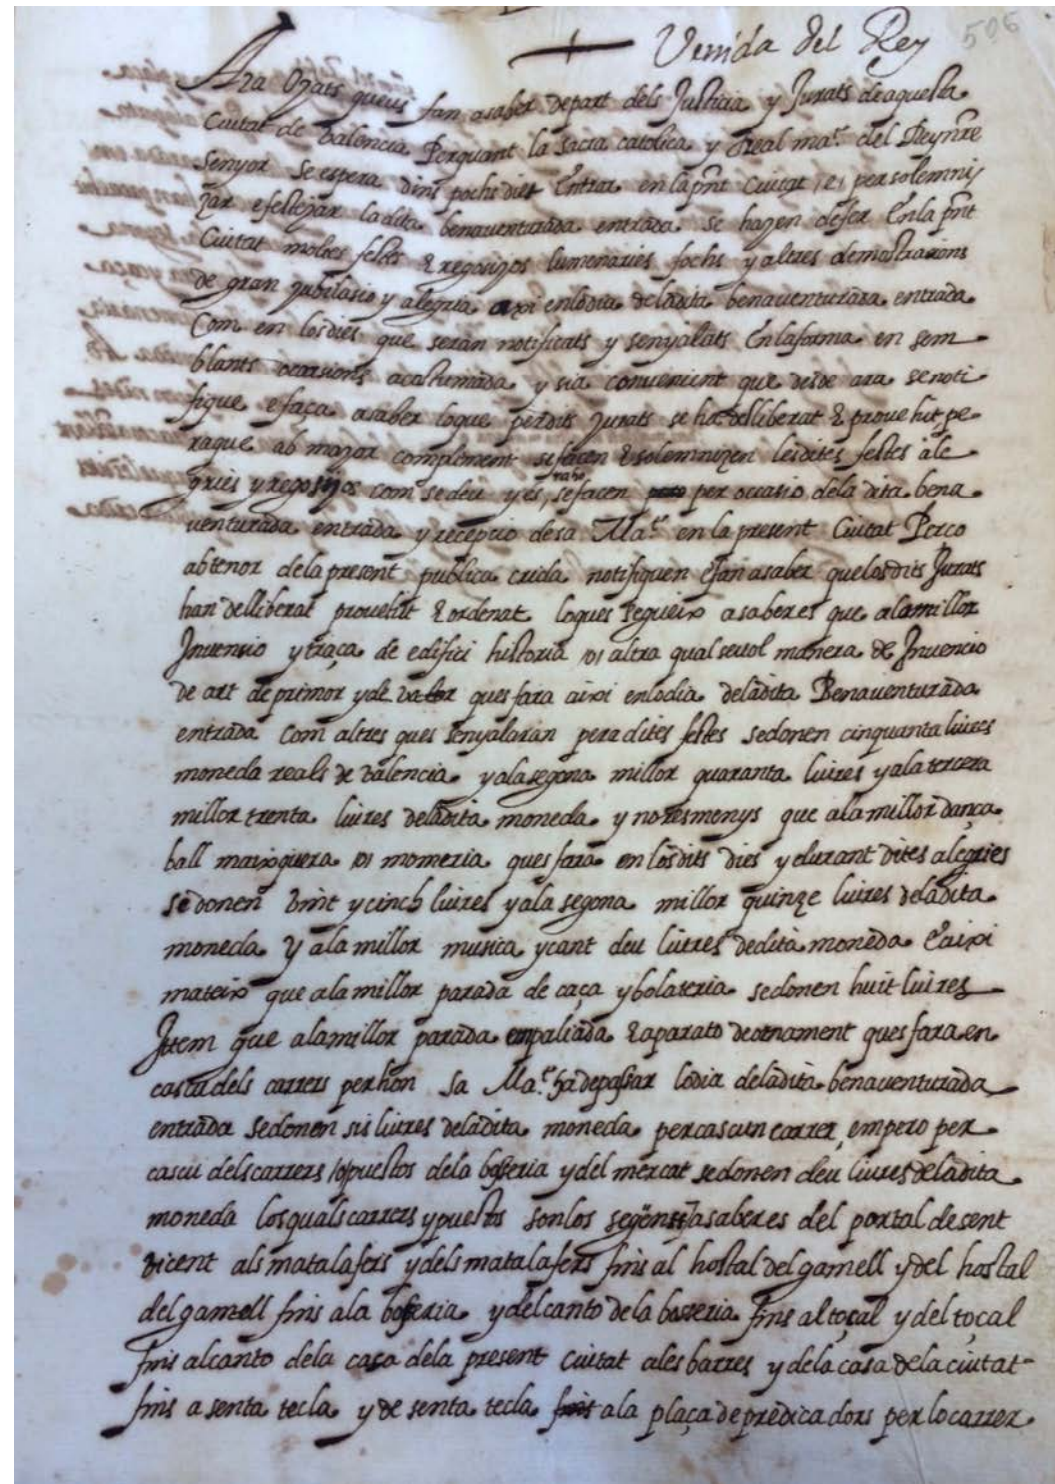 Venida del Rey 506
Ara Ojats queus fan asaber depart dels Justicia y Jurats de aquesta
Ciutat de Valencia Perquant la sacra catolica y Real ma.t del Rey nre
Senyor se espera dins pochs dies Entrar en la pnt Ciutat /e/ per solemni/
zar e festejar la dita benaventurada entrada se hajen defer En la pnt
Ciutat moltes festes & regosijos lumenaries fochs y altres demostracions
de gran jubilasio y alegria axi en lo dia de la dita benaventurara entrada
Com en los dies que seran notificats y senyalats En la forma en sem
blants occasions acastumada y sia convenient que desde ara se noti
fique e faça asaber lo que per dits Jurats se ha delliberat & provehit pe
raque ab major compliment se facen & solemnizen les dites festes ale
gries y regosijos com se deu y es raho se facen per occasio de la dita bena
venturada entrada y recepcio de sa Ma.t en la present Ciutat Perco
ab tenor de la present publica crida notifiquen e fan asaber que los dits Jurats
han delliberat provehit & ordenat lo ques segueix asaber es que a la millor
Invensio y traça de edifici historia /o/ altra qualsevol manera de Invencio
de art de primor y de valor ques fara aixi en lo dia de la dita Benaventurada
entrada Com altres ques senyalaran pera dites festes se donen cinquanta liures
moneda reals de Valencia y a la segona millor quaranta liures y a la tercera
millor trenta liures de la dita moneda y no res menys que a la millor dança
ball maixquera /o/ momeria ques fara en los dits dies y durant dites alegries
se donen vint y cinch liures y a la segona millor quinze liures de la dita
moneda Y a la millor musica y cant deu liures de dita moneda E aixi
mateix que a la millor parada de caça y bolateria se donen huit liures
Item que a la millor parada empaliada & aparato de ornament ques fara en
cascu dels carrers per hon sa Ma.t ha de passar lo dia de la dita benaventurada
entrada se donen sis liures de la dita moneda per cascun carrer, empero per
cascu dels carrers /o/ puestos de la bosseria y del mercat se donen deu liures de la dita
moneda los quals carrers y puestos son los següents asaber es del portal de sent
vicent als matalafers y dels matalafers fins al hostal del gamell y del hostal
del gamell fins a la bosseria y del canto de la bosseria fins al toçal y del toçal
fins al canto de la casa de la present ciutat a les barres y de la casa de la ciutat
fins a senta tecla y de senta tecla fins a la plaça de predicadors per lo carrer